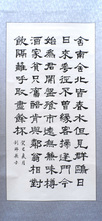 舍南舍北皆春水但見群鷗日
日來花徑不曾緣客掃蓬門今
始為君開盤飧市遠無兼味樽
酒家貧只舊醅肯與鄰翁相對
飲隔籬呼取盡餘杯